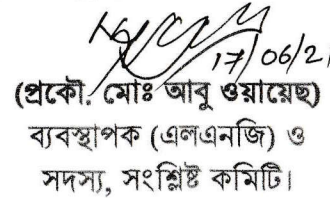 17/06/21
(প্রকৌ. মোঃ আবু ওয়ায়েছ)
ব্যবস্থাপক (এলএনজি) ও
সদস্য, সংশ্লিষ্ট কমিটি।